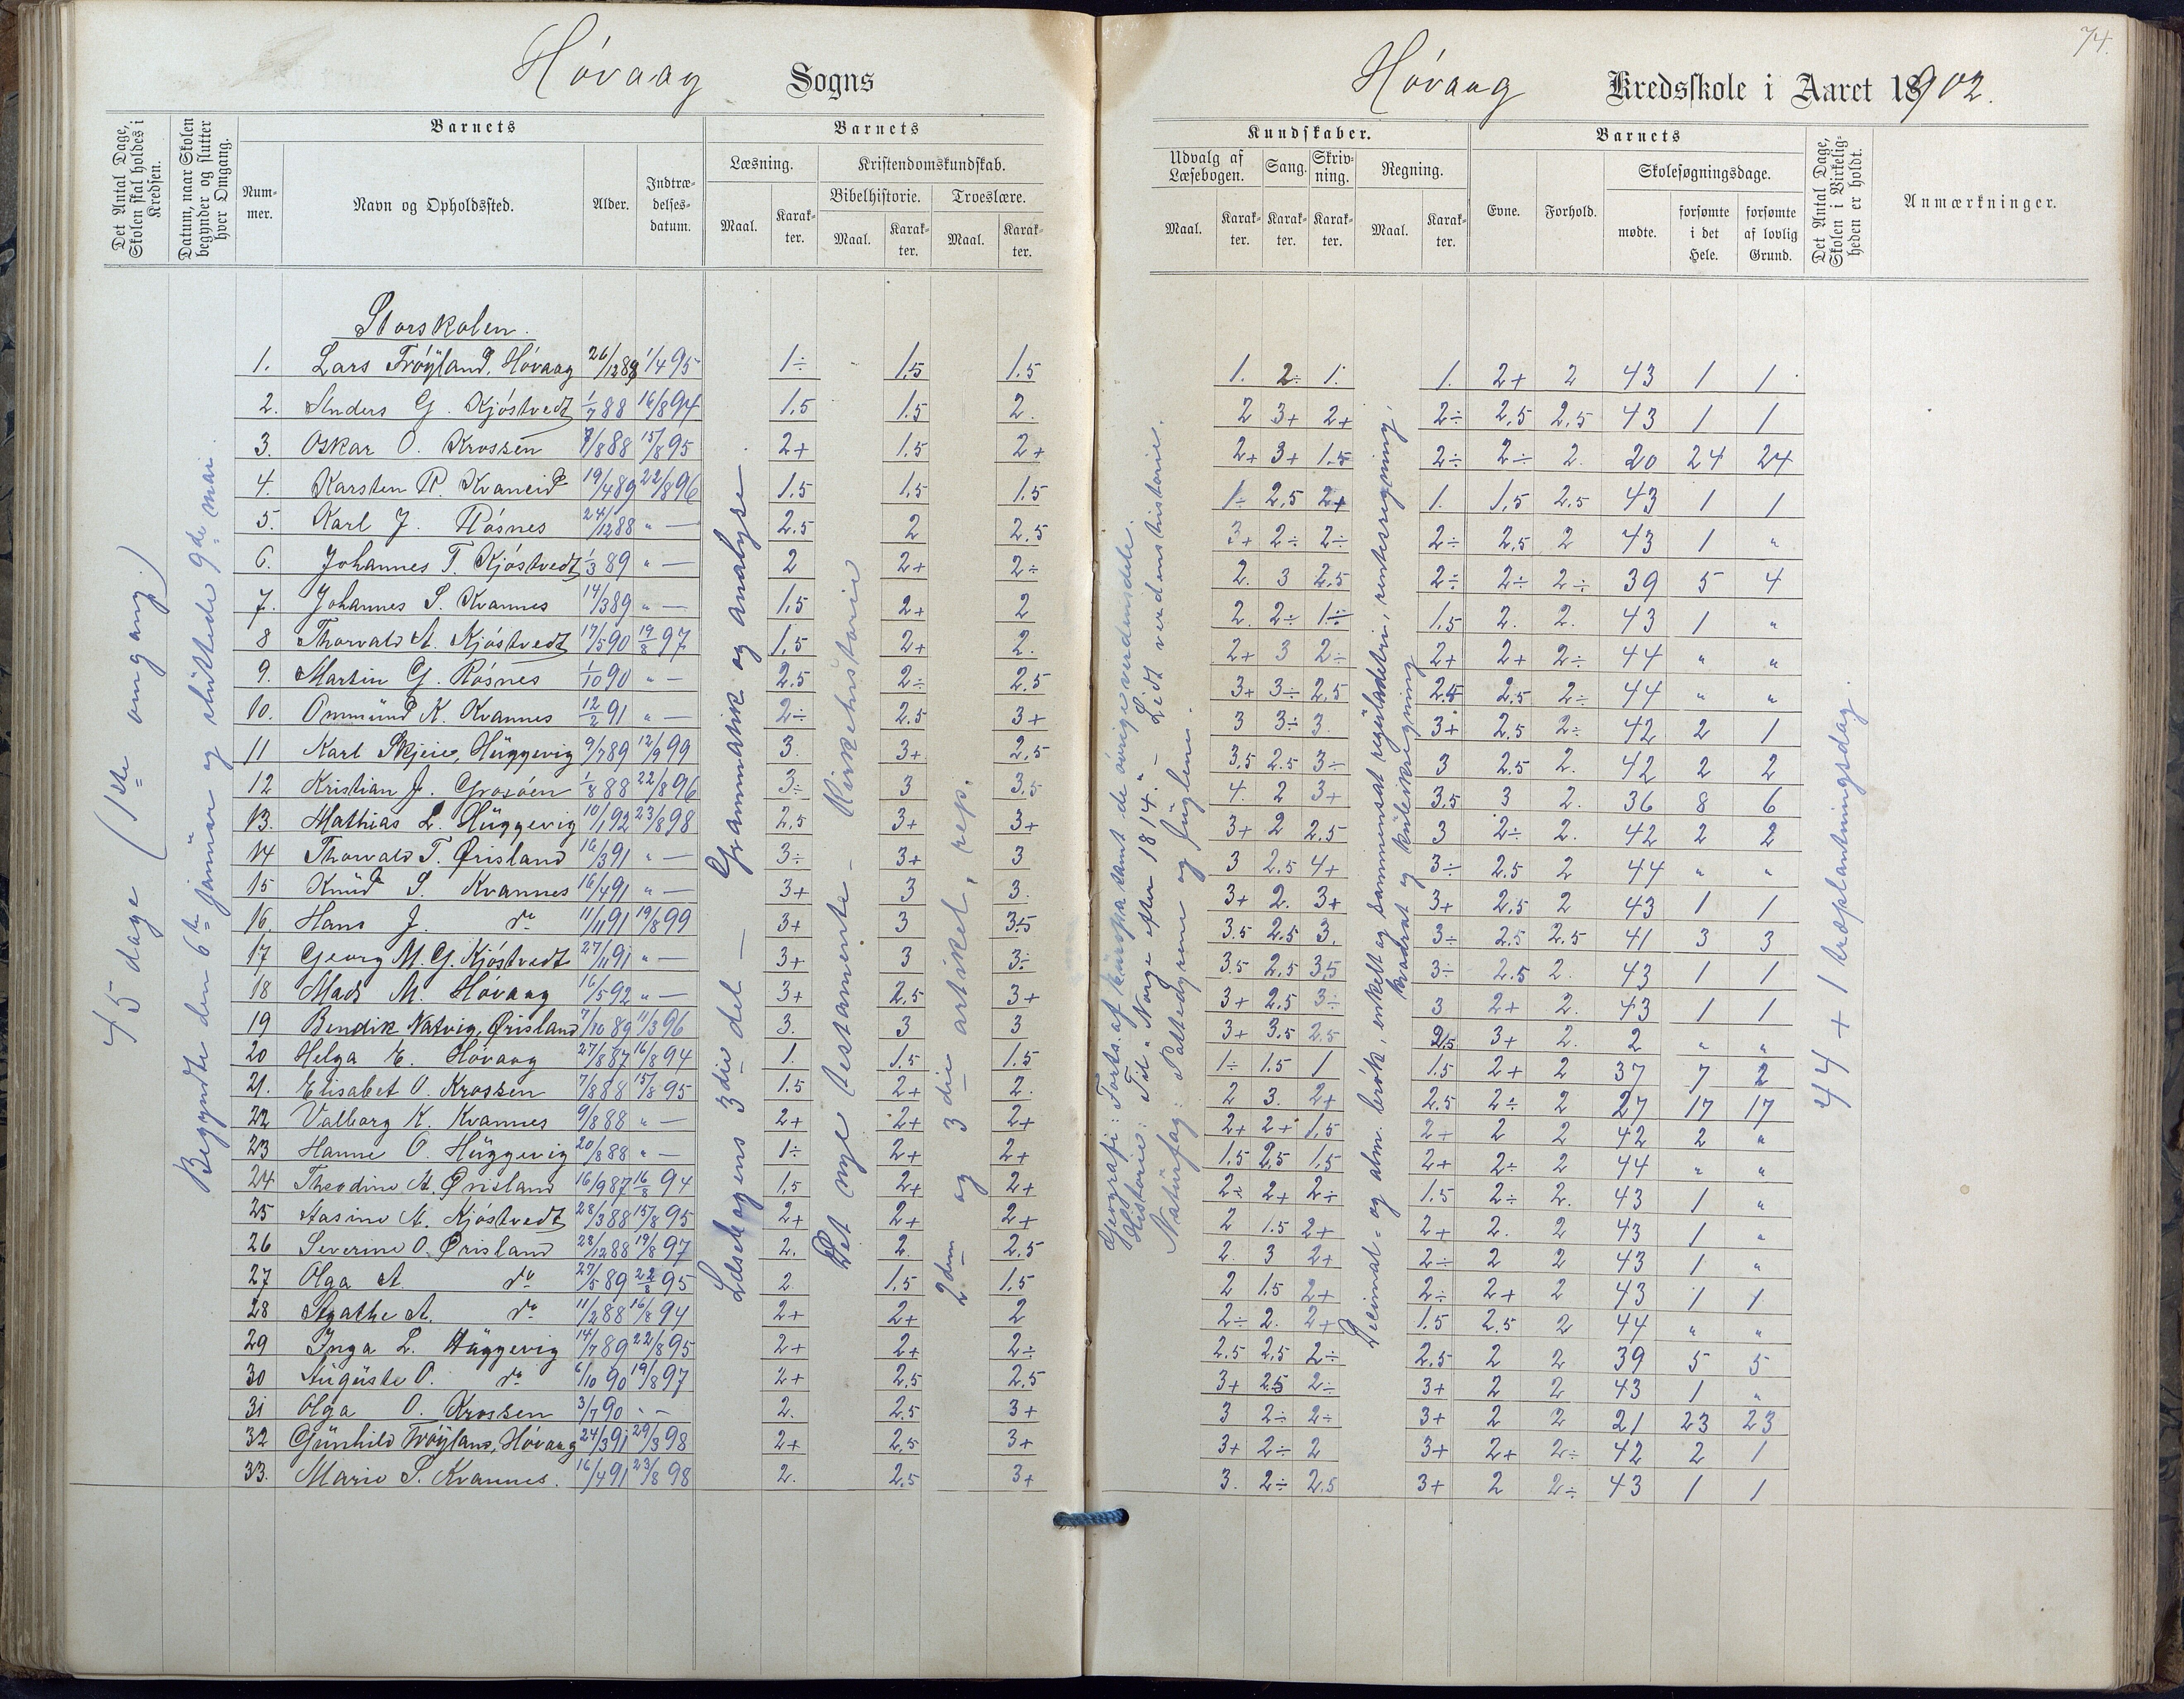 74.
Hóvaag Sogns
Hóvaag Kredsskole i Aaret 18902.
Det Antal Dage, Skolen skal holdes i Kredsen.
Datum, naar Skolen begynder og slutter hver Omgang.
Barnets
Nummer.
Navn og Opholdssted.
Alder.
Indtrædelsesdatum.
Barnets
Læsning.
Maal.
Karakter.
Kristendomskundskab.
Bibelhistorie.
Maal.
Karakter.
Troeslære.
Maal.
Karakter.
Kundskaber.
Udvalg af Læsebogen.
Maal.
Karakter.
Sang.
Karakter.
Skrivning.
Karakter.
Regning.
Maal.
Karakter.
Barnets
Evne.
Forhold.
Skolesøgningsdage.
mødte.
forsømte i det Hele.
forsømte af lovlig Grund.
Det Antal Dage, Skolen i Virkeligheden er holdt.
Anmærkninger.
45 dage (1ste omgang)
Begyndte den 6te januar og sluttede 9de mai.
Læsebogens 3die del – Grammatik og analyse.
Det nye testamente – Kirkehistorie
2den og 3die artikel, rep.
Geografi: Forts. af Europa samt de øvrige verdensdele.
Historie: Til "Norge efter 1814." – Lidt verdenshistorie.
Naturfag: Pattedyrene og fuglene.
Decimal- og alm. brøk, enkelt og sammensat reguladetri, rentesregning,
kvadrat og kubikregning
44 + 1 træplantningsdag.
Storskolen.
1. Lars Frøyland, Hóvaag 26/12 89 1/4 95 1÷ 1.5 1.5 1. 2÷ 1. 1. 2+ 2 43 1 1
2. Anders G. Kjóstvedt 1/7 88 16/8 94 1.5 1.5 2. 2 3+ 2+ 2÷ 2.5 2.5 43 1 1
3. Oskar O. Krossen 7/8 88 15/8 95 2+ 1.5 2+ 2+ 3+ 1.5 2÷ 2÷ 2. 20 24 24
4. Karsten R. Kvaneid 19/4 89 22/8 96 1.5 1.5 1.5 1÷ 2.5 2+ 1. 1.5 2.5 43 1 1
5. Karl J. Rósnes 24/12 88 " — 2.5 2 2.5 3+ 2÷ 2÷ 2÷ 2.5 2 43 1 "
6. Johannes T. Kjóstvedt 1/3 89 " — 2 2+ 2÷ 2. 3 2.5 2÷ 2÷ 2÷ 39 5 4
7. Johannes S. Kvannes 14/3 89 " — 1.5 2+ 2 2. 2÷ 1÷ 1.5 2. 2. 43 1 "
8 Thorvald A. Kjóstvedt 17/5 90 19/8 97 1.5 2+ 2. 2+ 3 2÷ 2+ 2+ 2÷ 44 " "
9. Martin G. Rósnes 1/10 90 " — 2.5 2÷ 2.5 3+ 3÷ 2.5 2.5 2.5 2÷ 44 " "
10. Ommund K. Kvannes 12/2 91 " — 2÷ 2.5 3+ 3 3÷ 3. 3+ 2.5 2÷ 42 2 1
11 Karl Skjeie, Huggevig 9/7 89 12/9 99 3. 3+ 2.5 3.5 2.5 3÷ 3 2.5 2. 42 2 2
12 Kristian J. Grosóen 1/8 88 22/8 96 3÷ 3 3.5 4. 2 3+ 3.5 3 2. 36 8 6
13. Mathias L. Huggevig 10/1 92 23/8 98 2.5 3+ 3+ 3+ 2 2.5 3 2÷ 2. 42 2 2
14 Thorvald T. Ørisland 16/3 91 " — 3÷ 3+ 3 3 2.5 4+ 3÷ 2.5 2 44 " "
15 Knud S. Kvannes 16/4 91 " — 3+ 3 3. 3+ 2. 3+ 3+ 2.5 2 43 1 1
16. Hans J. do 11/11 91 19/8 99 3+ 3 3.5 3.5 2.5 3. 3÷ 2.5 2.5 41 3 3
17 Georg M. G. Kjóstvedt 27/11 91 " — 3+ 3 3÷ 3.5 2.5 3.5 3÷ 2.5 2. 43 1 1
18 Mads M. Hóvaag 16/5 92 " — 3+ 2.5 3+ 3+ 2.5 3÷ 3 2+ 2. 43 1 1
19 Bendik Natvig, Ørisland 7/10 89 11/3 96 3. 3 3 3+ 3.5 2.5 2.5 3+ 2. 2 " "
20 Helga E. Hóvaag 27/8 87 16/8 94 1. 1.5 1.5 1÷ 1.5 1 1.5 2+ 2 37 7 2
21. Elisabet O. Krossen 7/8 88 15/8 95 1.5 2+ 2. 2 3. 2+ 2.5 2÷ 2 27 17 17
22 Valborg K. Kvannes 9/8 88 " — 2+ 2+ 2+ 2+ 2+ 1.5 2+ 2 2 42 2 "
23 Hanne O. Huggevig 20/8 88 " — 1÷ 2+ 2+ 1.5 2.5 1.5 2+ 2÷ 2 44 " "
24 Theodine A. Ørisland 16/9 87 16/8 94 1.5 2+ 2+ 2÷ 2+ 2÷ 1.5 2÷ 2. 43 1 "
25 Aasine A. Kjóstvedt 28/3 88 15/8 95 2+ 2+ 2+ 2 1.5 2+ 2+ 2. 2 43 1 "
26 Severine O. Ørisland 28/12 88 19/8 97 2. 2. 2.5 2. 3 2+ 2÷ 2 2 43 1 "
27 Olga A. do 27/5 89 22/8 95 2 1.5 1.5 2 1.5 2+ 2÷ 2+ 2 43 1 1
28 Agathe A. do 11/2 88 16/8 94 2+ 2+ 2 2÷ 2. 2+ 1.5 2.5 2 44 " "
29 Inga L. Huggevig 14/7 89 22/8 95 2+ 2+ 2÷ 2.5 2.5 2÷ 2.5 2 2 39 5 5
30 Auguste O. do 6/10 90 19/8 97 2+ 2.5 2.5 3+ 2.5 2÷ 3+ 2 2 43 1 "
31 Olga O. Krossen 3/7 90 " — 2. 2.5 3+ 3 2÷ 2÷ 3+ 2 2 21 23 23
32 Gunhild Frøyland, Hóvaag 24/3 91 29/3 98 2+ 2.5 3+ 3+ 2÷ 2 3+ 2+ 2÷ 42 2 1
33. Marie S. Kvannes. 16/4 91 23/8 98 2. 2.5 3+ 3. 2÷ 2.5 3+ 2 2÷ 43 1 1